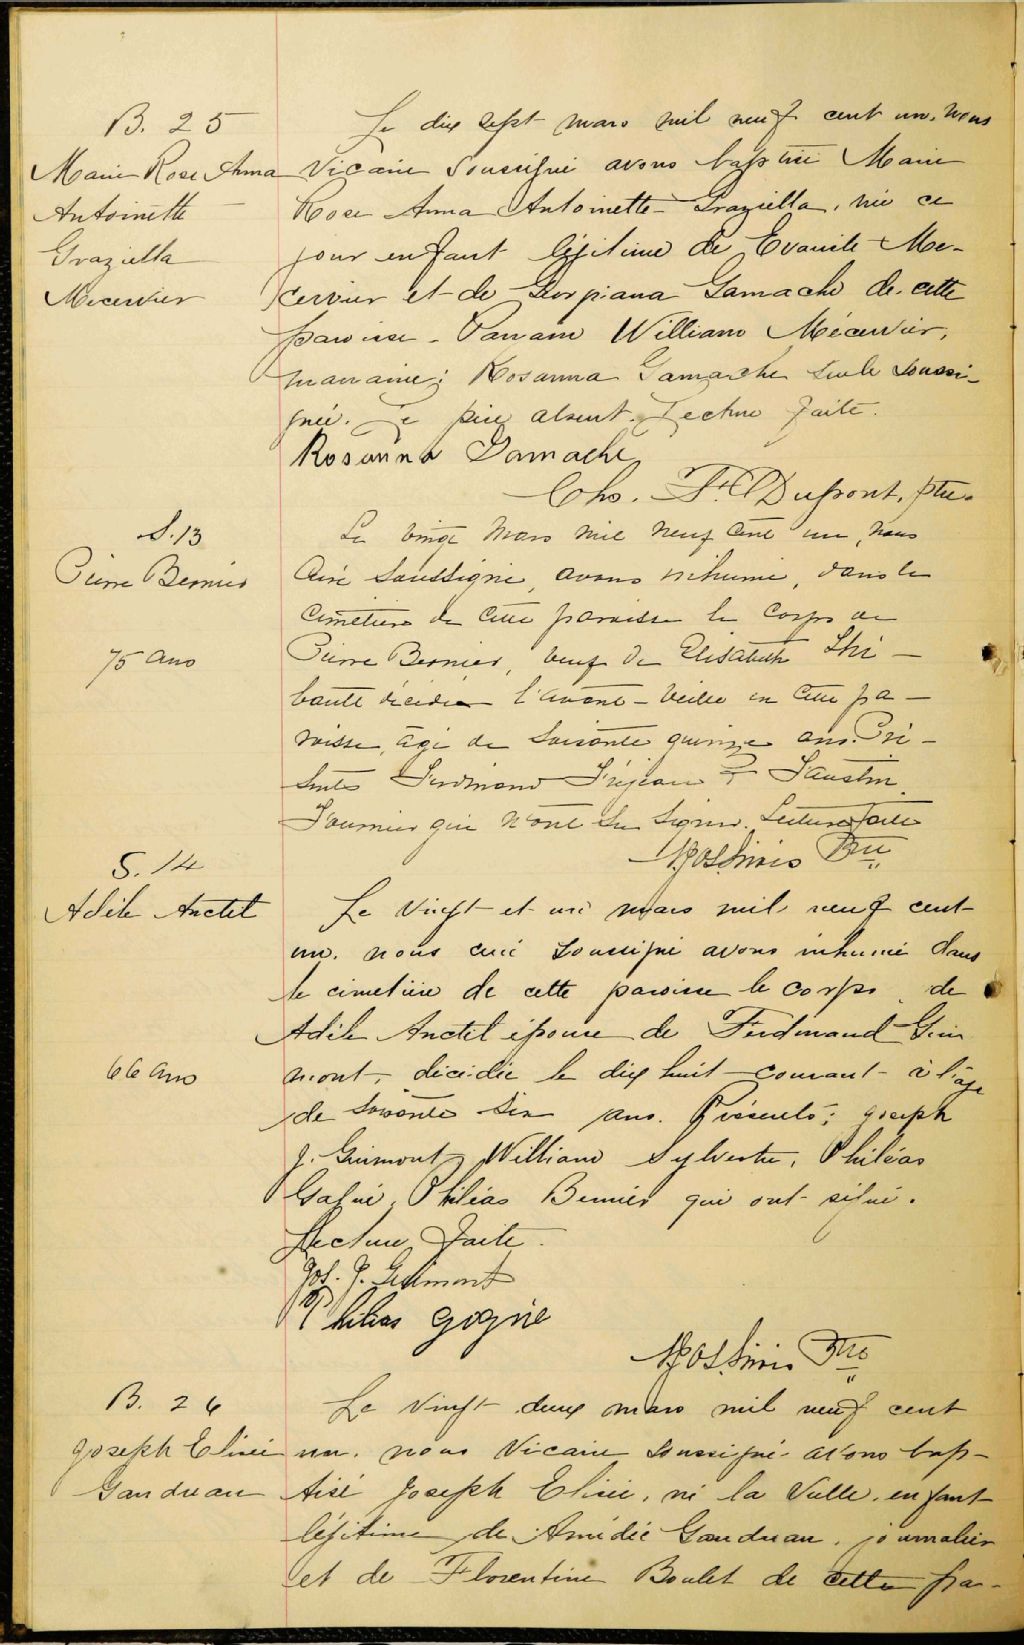 B. 25
Marie Rose Anna
Antoinette
Graziella
Mecervier
Le dix sept mars mil neuf cent un, nous
Vicaire soussigné avons baptisé Marie
Rose Anna Antoinette Graziella, née ce
jour enfant légitime de Evariste Me-
cervier et de Georgiana Gamache de cette
paroisse. Parrain William Mécervier,
marraine: Rosanna Gamache seule soussi-
gnée. Le père absent. Lecture faite.
Rosanna Gamache
Chs. F. C. Dupont, ptre.
S. 13
Pierre Bernier
75 ans
Le vingt Mars mil neuf cent un, nous
Curé Soussigné, avons inhumé, dans le
cimetière de cette paroisse le corps de
Pierre Bernier, veuf de Elisabeth Thi-
bault décédé l'avant-veille en cette pa-
roisse, âgé de soixante quinze ans. Pré-
sents Ferdinand Fréjeau & Faustin
Fournier qui n'ont su signer. Lecture faite
Ptre
S. 14
Adèle Anctil
66 ans
Le vingt et un mars mil neuf cent
un, nous curé soussigné avons inhumé dans
le cimetière de cette paroisse le corps de
Adèle Anctil épouse de Ferdinand Gui-
mont, décédée le dix huit courant à l'âge
de soixante six ans. Présents: Joseph
J. Guimont, William Sylvestre, Philéas
Gagné, Philéas Bernier qui ont signé.
Lecture faite.
Jos. J. Guimont
Philias Gagné
Ptre
B. 26
Joseph Elisée
Gaudreau
Le vingt deux mars mil neuf cent
un, nous Vicaire soussigné avons bap-
tisé Joseph Elisée, né la veille, enfant
légitime de Amédée Gaudreau, journalier
et de Florentine Boulet de cette pa-